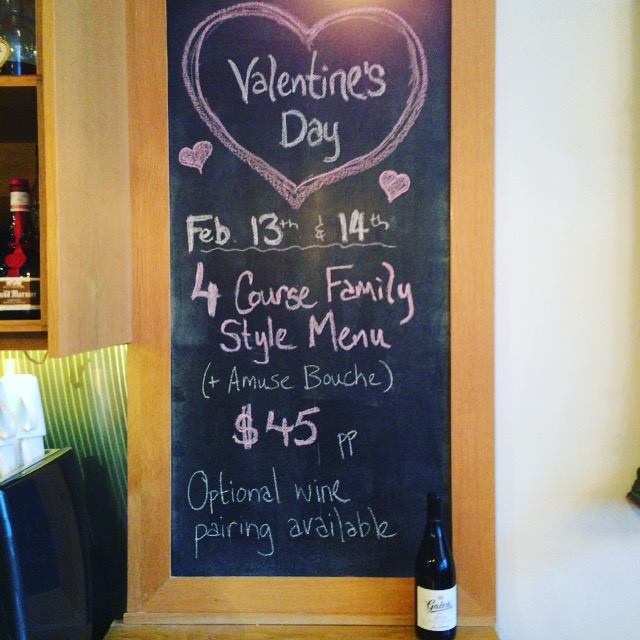 Valentine's
Day
Feb. 13th & 14th
4 Course Family
Style Menu
(+ Amuse Bouche)
$45 pp
Optional wine
pairing available
Marnier